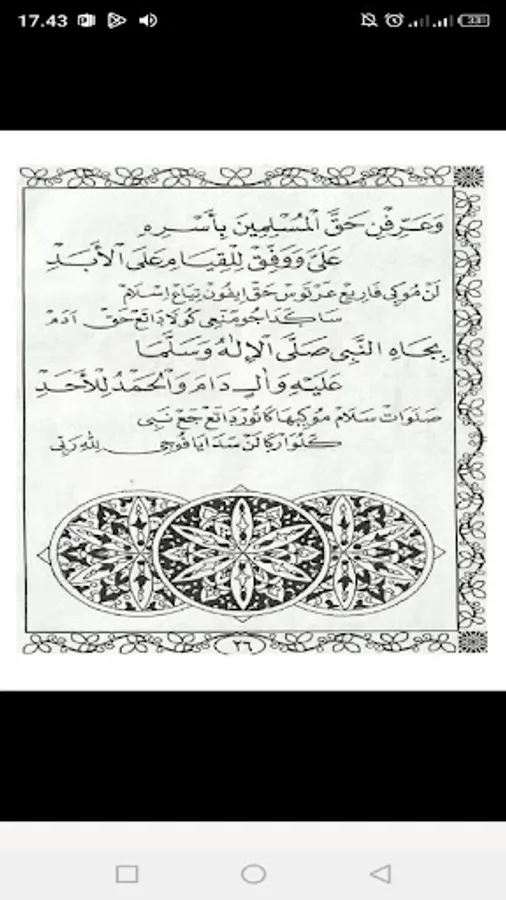 17.43
33
وَعَرِّفَنِ حَقَّ الْمُسْلِمِينَ بِأَسْرِهِ
عَلَيَّ وَوَفِّقْ لِلْقِيَامِ عَلَى الْأَبَدِ
لن موكي فاريڠ عرتوس حق ايفون تياڠ اسلام
ساكداجو متهي كولا داتڠ حق ادم
بِجَاهِ النَّبِي صَلَّى الْإِلٰهُ وَسَلَّمَا
عَلَيْهِ وَاٰلٍ دَامَ وَالْحَمْدُ لِلْأَحَدِ
صلوات سلام موكيها كاتور داتڠ جڠ نبي
كلوارݢا لن سدايا فوجي لِلّٰهِ رَبِّي
٢٦